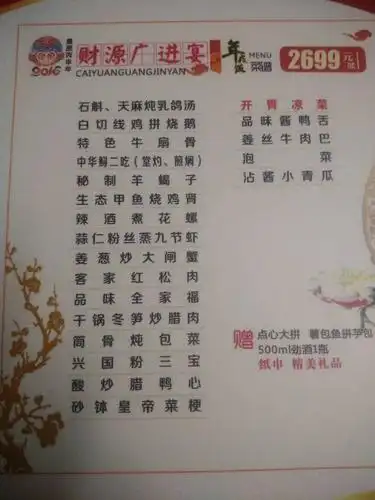 喜居丙申年
2016
财源广进宴
CAIYUANGUANGJINYAN
年夜饭
MENU
菜谱
2699元/席
石斛、天麻炖乳鸽汤
白切线鸡拼烧鹅
特色牛扇骨
中华鲟二吃(堂灼、煎焗)
秘制羊蝎子
生态甲鱼烧鸡肾
辣酒煮花螺
蒜仁粉丝蒸九节虾
姜葱炒大闸蟹
客家红松肉
品味全家福
干锅冬笋炒腊肉
筒骨炖包菜
兴国粉三宝
酸炒腊鸭心
砂钵皇帝菜梗
开胃凉菜
品味酱鸭舌
姜丝牛肉巴
泡菜
沾酱小青瓜
赠 点心大拼 薯包鱼拼芋包
500ml劲酒1瓶
纸巾 精美礼品